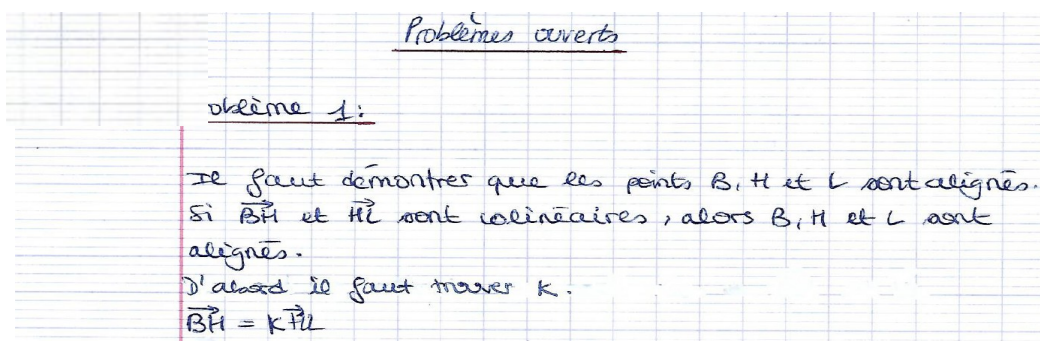 Problèmes ouverts
oblème 1:
Il faut démontrer que les points B, H et L sont alignés.
Si BH et HL sont colinéaires, alors B, H et L sont
alignés.
D'abord il faut trouver K.
BH = KHL